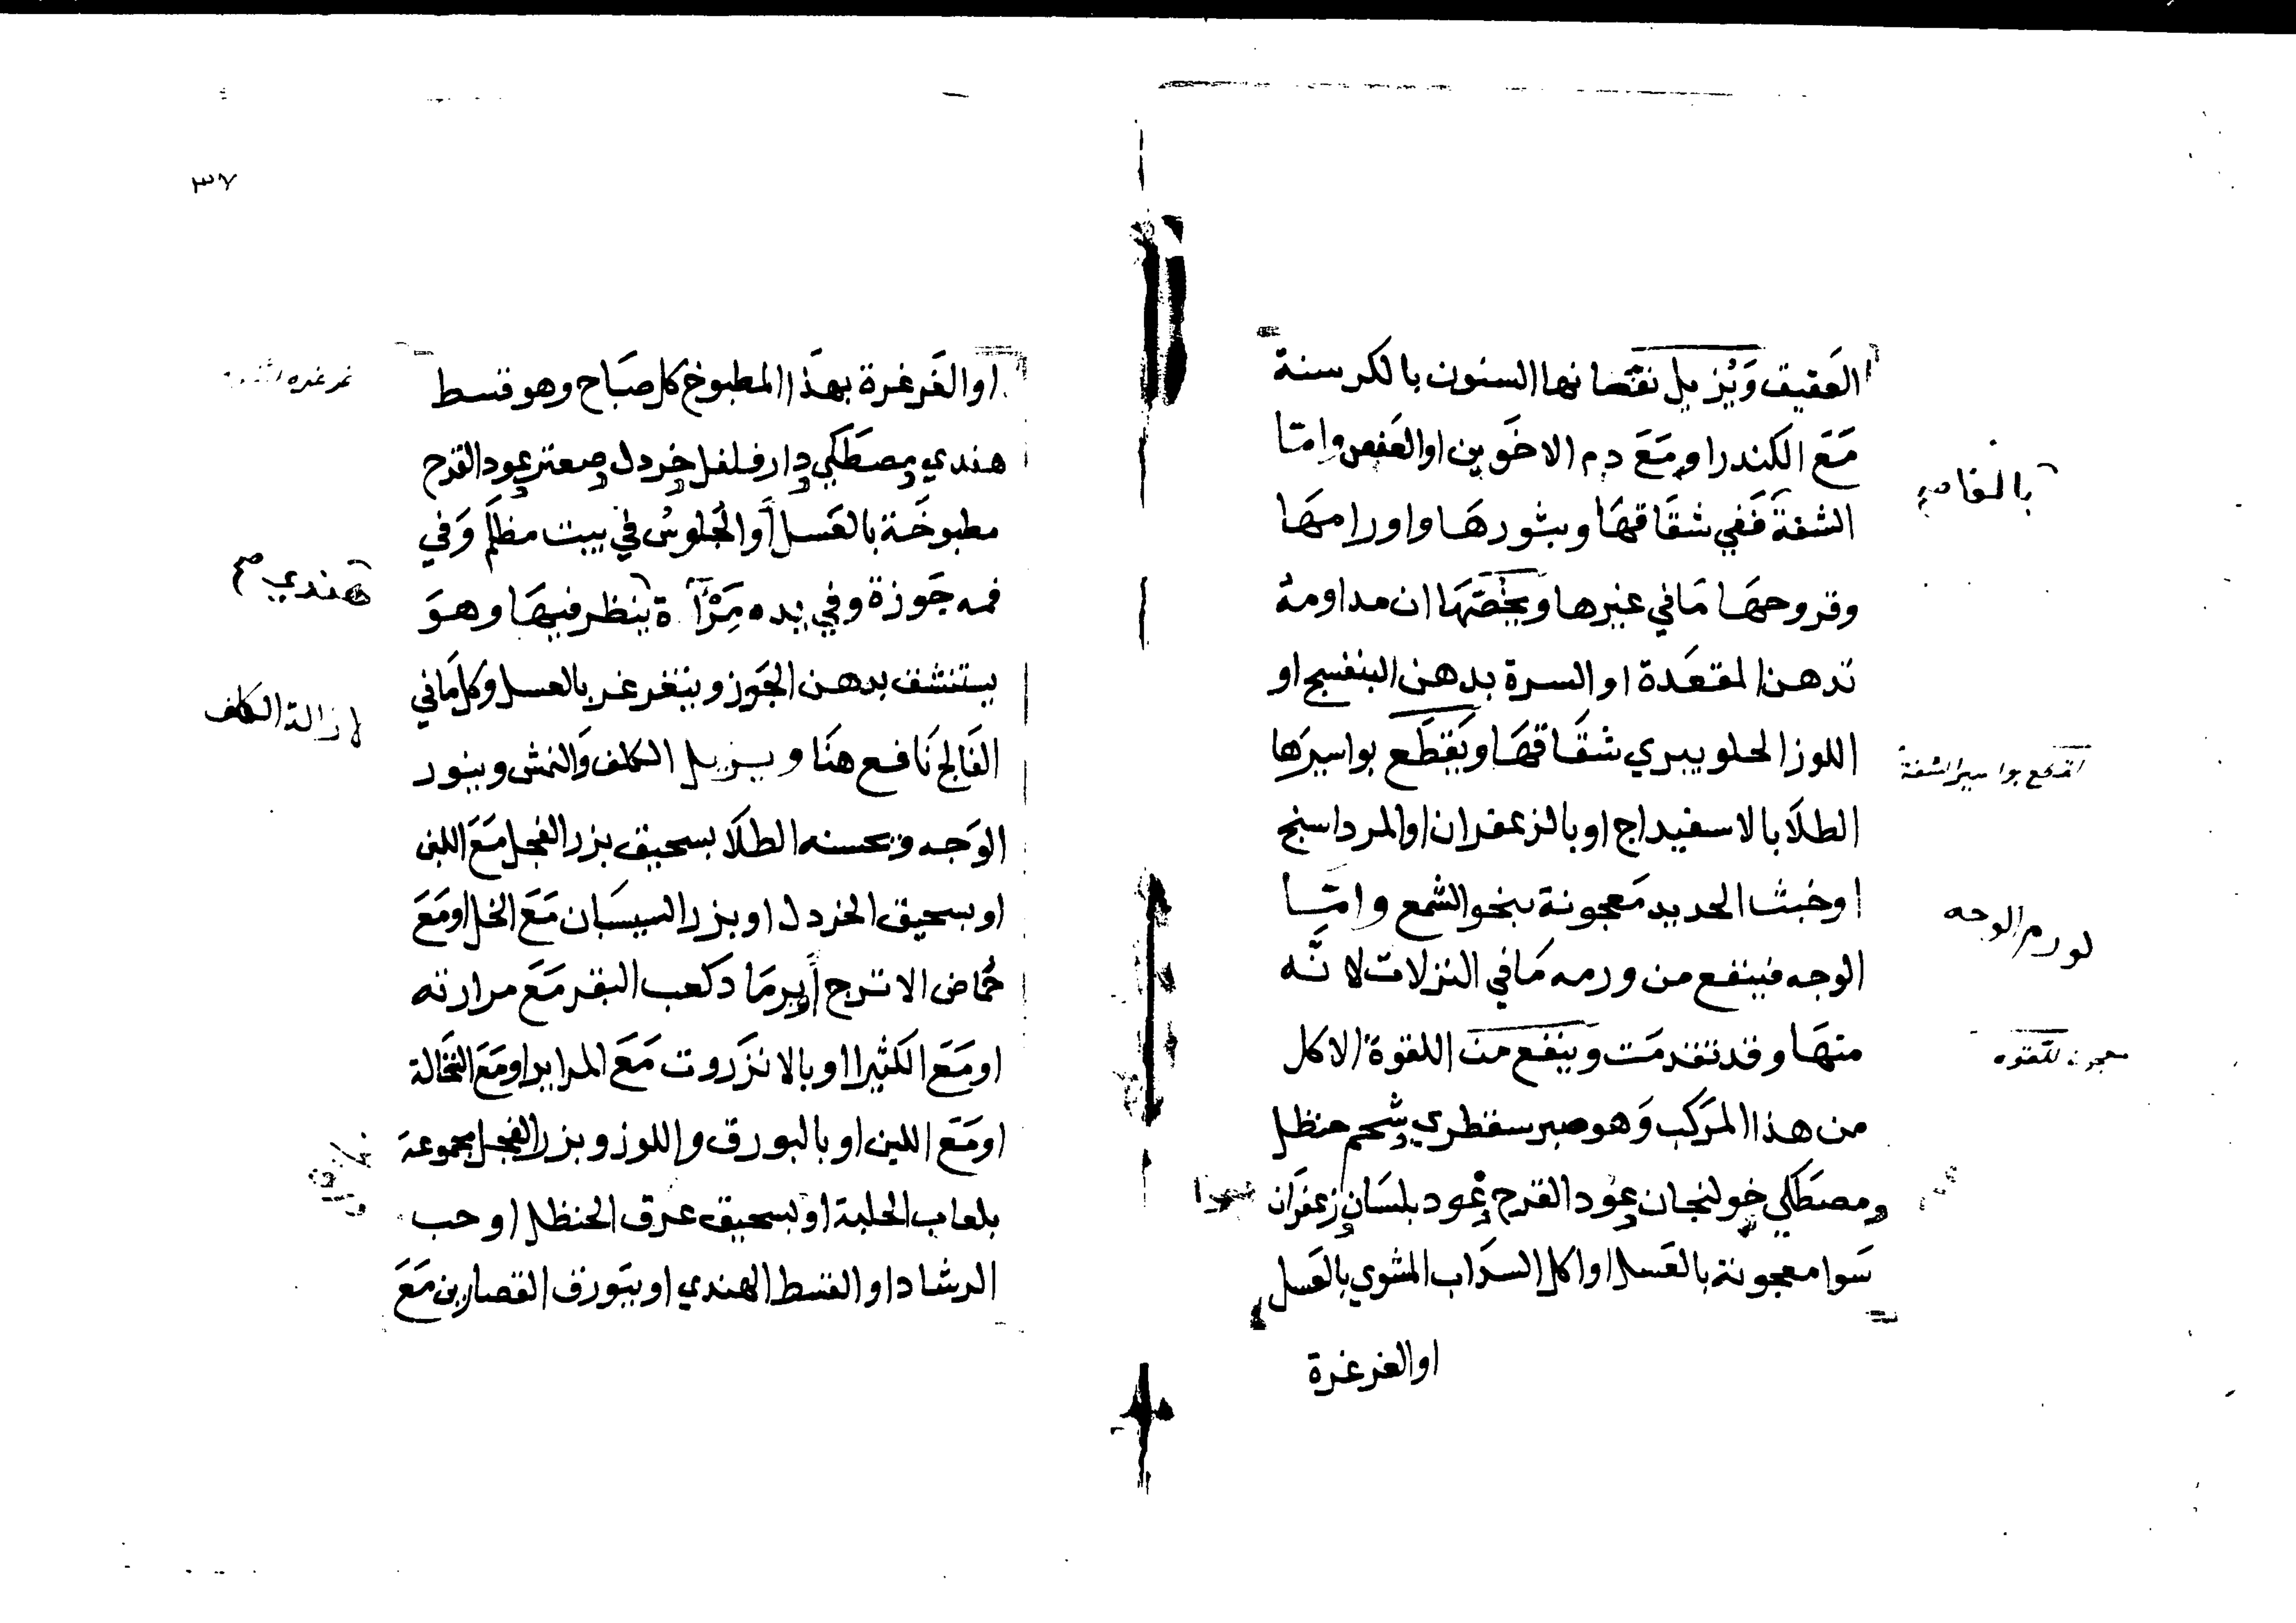 العَقيق وَيُزيل نقصانها السنون بالكرسنة
مَعَ الكندر او مَعَ دم الاخَوين او العَفص وامّا
الشفة فَفي شقَاقهَا وبثورهَا واورامهَا
وقروحهَا مَا في غيرها ويخصّهَا ان مداومة
تدهن المقعَدة او السرة بدهن البنفسج او
اللوز الحلو يبري شقَاقهَا ويَقطَع بواسيرَها
الطلَا بالاسفيداج او بالزعفران او المرداسنج
او خبث الحديد مَعجونة بنحو الشمع وامّا
الوجه فينفع من ورمه مَا في النزلات لانَّه
منهَا وقد تقدمَت وينفع منَ اللقوة الاكل
من هذا المرَكب وَهو صبر سقطري وشحم حنظل
ومصطَكي وخولنجان وعود القرح وعود بلسَان وزعفرَان
سَوا معجونة بالعَسل او اكل السدَاب المشوي بالعَسل
او الغرغرة
بالفاصم
لقطع بواسير الشفة
لورم الوجه
معجون للقوه
٣٧
او الغَرغرة بهذَا المطبوخ كل صبَاح وهو قسط
هندي ومصطَكي ودارفلفل وخردل وصعتر وعود القرح
مطبوخَة بالعَسل أَو الجُلوسُ في بيت مظلم وَفي
فمه جَوزة وفي يده مِرْآة ينظر فيهَا وهوَ
يستنشق بدهن الجَوز ويتغرغر بالعسل وكل مَا في
الفَالج نَافع هنَا ويزيل الكلف وَالنمش وينور
الوَجه ويحسنه الطلَا بسحيق بزر الفجل مَعَ اللبن
او بسحيق الخردل او بزر السيسبَان مَعَ الخل او مَعَ
حُماض الاترج أو برمَاد كعب البقر مَعَ مرارته
او مَعَ الكثيرا او بالانزَروت مَعَ المراير او مَعَ النخَالة
او مَعَ اللبن او بالبورق واللوز وبزر الفجل مجموعة
بلعاب الحلبة او بسحيق عرق الحنظل او حب
الرشاد او القسط الهندي او ببَورق القصارين مَعَ
غرغره
هندي صح
لازالة الكلف